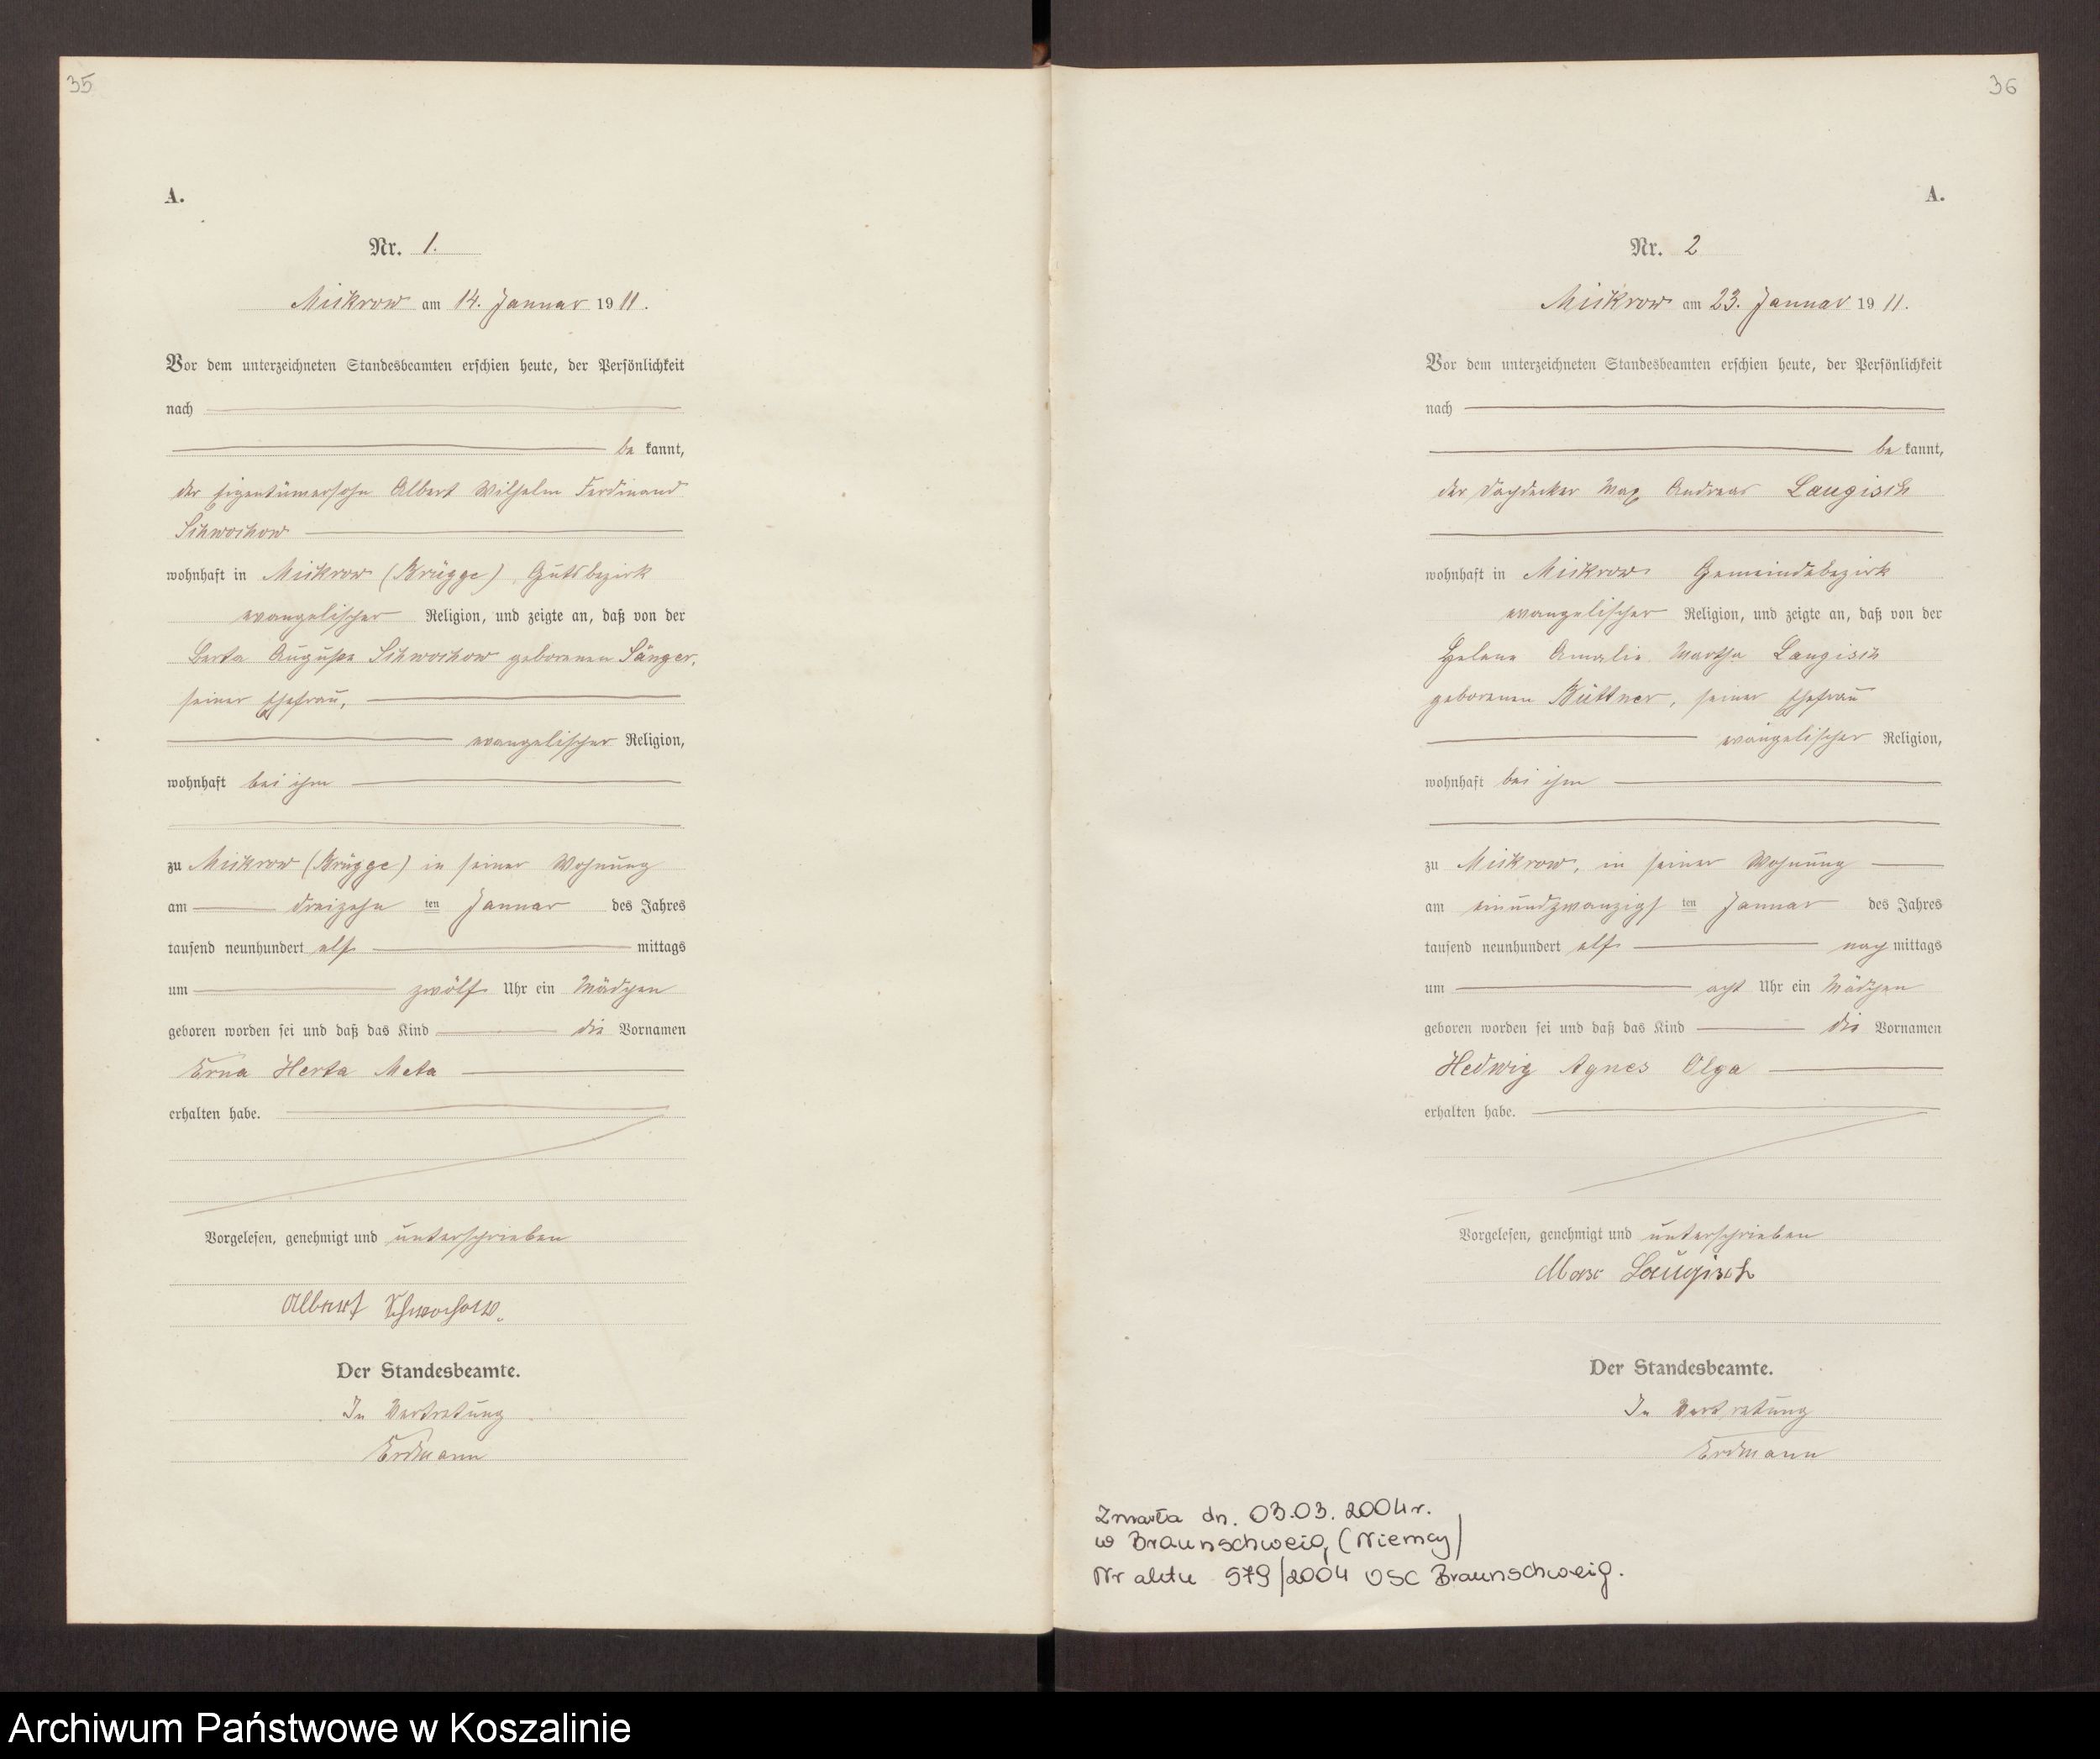 35
A.
Nr. 1.
Mickrow am 14. Januar 1911.
Vor dem unterzeichneten Standesbeamten erschien heute, der Persönlichkeit
nach
be kannt,
der Eigentümersohn Albert Wilhelm Ferdinand
Schwochow
wohnhaft in Mickrow (Brügge), Gutsbezirk
evangelischer Religion, und zeigte an, daß von der
Berta Auguste Schwochow geborenen Sänger,
seiner Ehefrau,
evangelischer Religion,
wohnhaft bei ihm
zu Mickrow (Brügge) in seiner Wohnung
am dreizehn ten Januar des Jahres
tausend neunhundert elf mittags
um zwölf Uhr ein Mädchen
geboren worden sei und daß das Kind die Vornamen
Erna Herta Meta
erhalten habe.
Vorgelesen, genehmigt und unterschrieben
Albert Schwochow.
Der Standesbeamte.
In Vertretung
Erdmann
36
A.
Nr. 2
Mickrow am 23. Januar 1911.
Vor dem unterzeichneten Standesbeamten erschien heute, der Persönlichkeit
nach
be kannt,
der Dachdecker Max Andreas Laugisch
wohnhaft in Mickrow Gemeindebezirk
evangelischer Religion, und zeigte an, daß von der
Helene Amalie Martha Laugisch
geborenen Büttner, seiner Ehefrau
evangelischer Religion,
wohnhaft bei ihm
zu Mickrow, in seiner Wohnung
am einundzwanzigs ten Januar des Jahres
tausend neunhundert elf nach mittags
um acht Uhr ein Mädchen
geboren worden sei und daß das Kind die Vornamen
Hedwig Agnes Olga
erhalten habe.
Vorgelesen, genehmigt und unterschrieben
Max Laugisch
Der Standesbeamte.
In Vertretung
Erdmann
Zmarła dn. 03.03.2004r.
w Braunschweig (Niemcy)
Nr aktu 979/2004 USC Braunschweig.
Archiwum Państwowe w Koszalinie